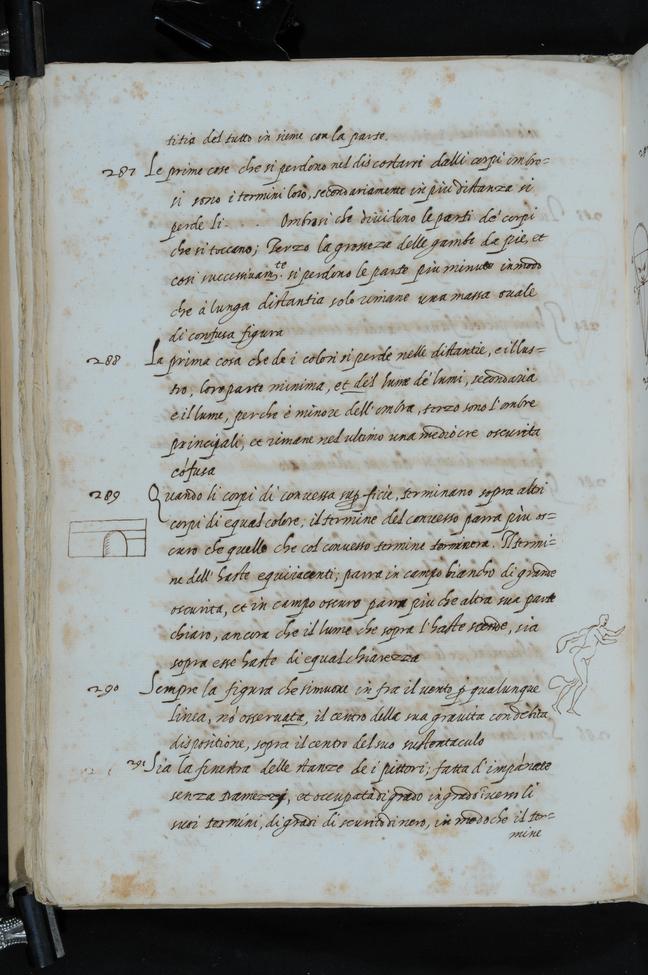 titia del tutto in sieme con la parte.
287 Le prime cose che si perdono nel discostarsi dalli corpi ombro=
si sono i termini loro, secondariamente in più distanza si
perde li . . Ombrosi che dividono le parti de' corpi
che si toccano; Terzo la grosseza delle gambe da pie, et
cosi successivam.te si perdono le parte più minute in modo
che à lunga distantia solo rimane una massa ovale
di confusa figura
288 La prima cosa che de i colori si perde nelle distantie, e il lus=
tro, loro parte minima, et del lume de' lumi, secondaria
è il lume, perche è minore dell' ombra, terzo sono l'ombre
principali, et rimane nel ultimo una mediocre oscurità
cõfusa
289 Quando li corpi di convessa sup.ficie, terminano sopra altri
corpi di equal colore; il termine del convesso parra più os=
curo che quello che col convesso termine terminera. Il termi=
ne dell' haste equiiacenti; parra in campo biancho di grande
oscurità, et in campo oscuro parra più che altra sua parte
chiaro, ancora che il lume che sopra l'haste scende, sia
sopra esse haste di equal chiarezza
290 Sempre la figura che si muove in fra il vento p qualunque
linea, nõ osservata, il centro della sua gravità con debita
dispositione, sopra il centro del suo sustentaculo
291 Sia la finestra delle stanze de i pittori; fatta d'impannate
senza tramezzi, et occupata di grado in grado inverso li
suoi termini, di gradi di scurito di nero, in modo che il ter=
mine